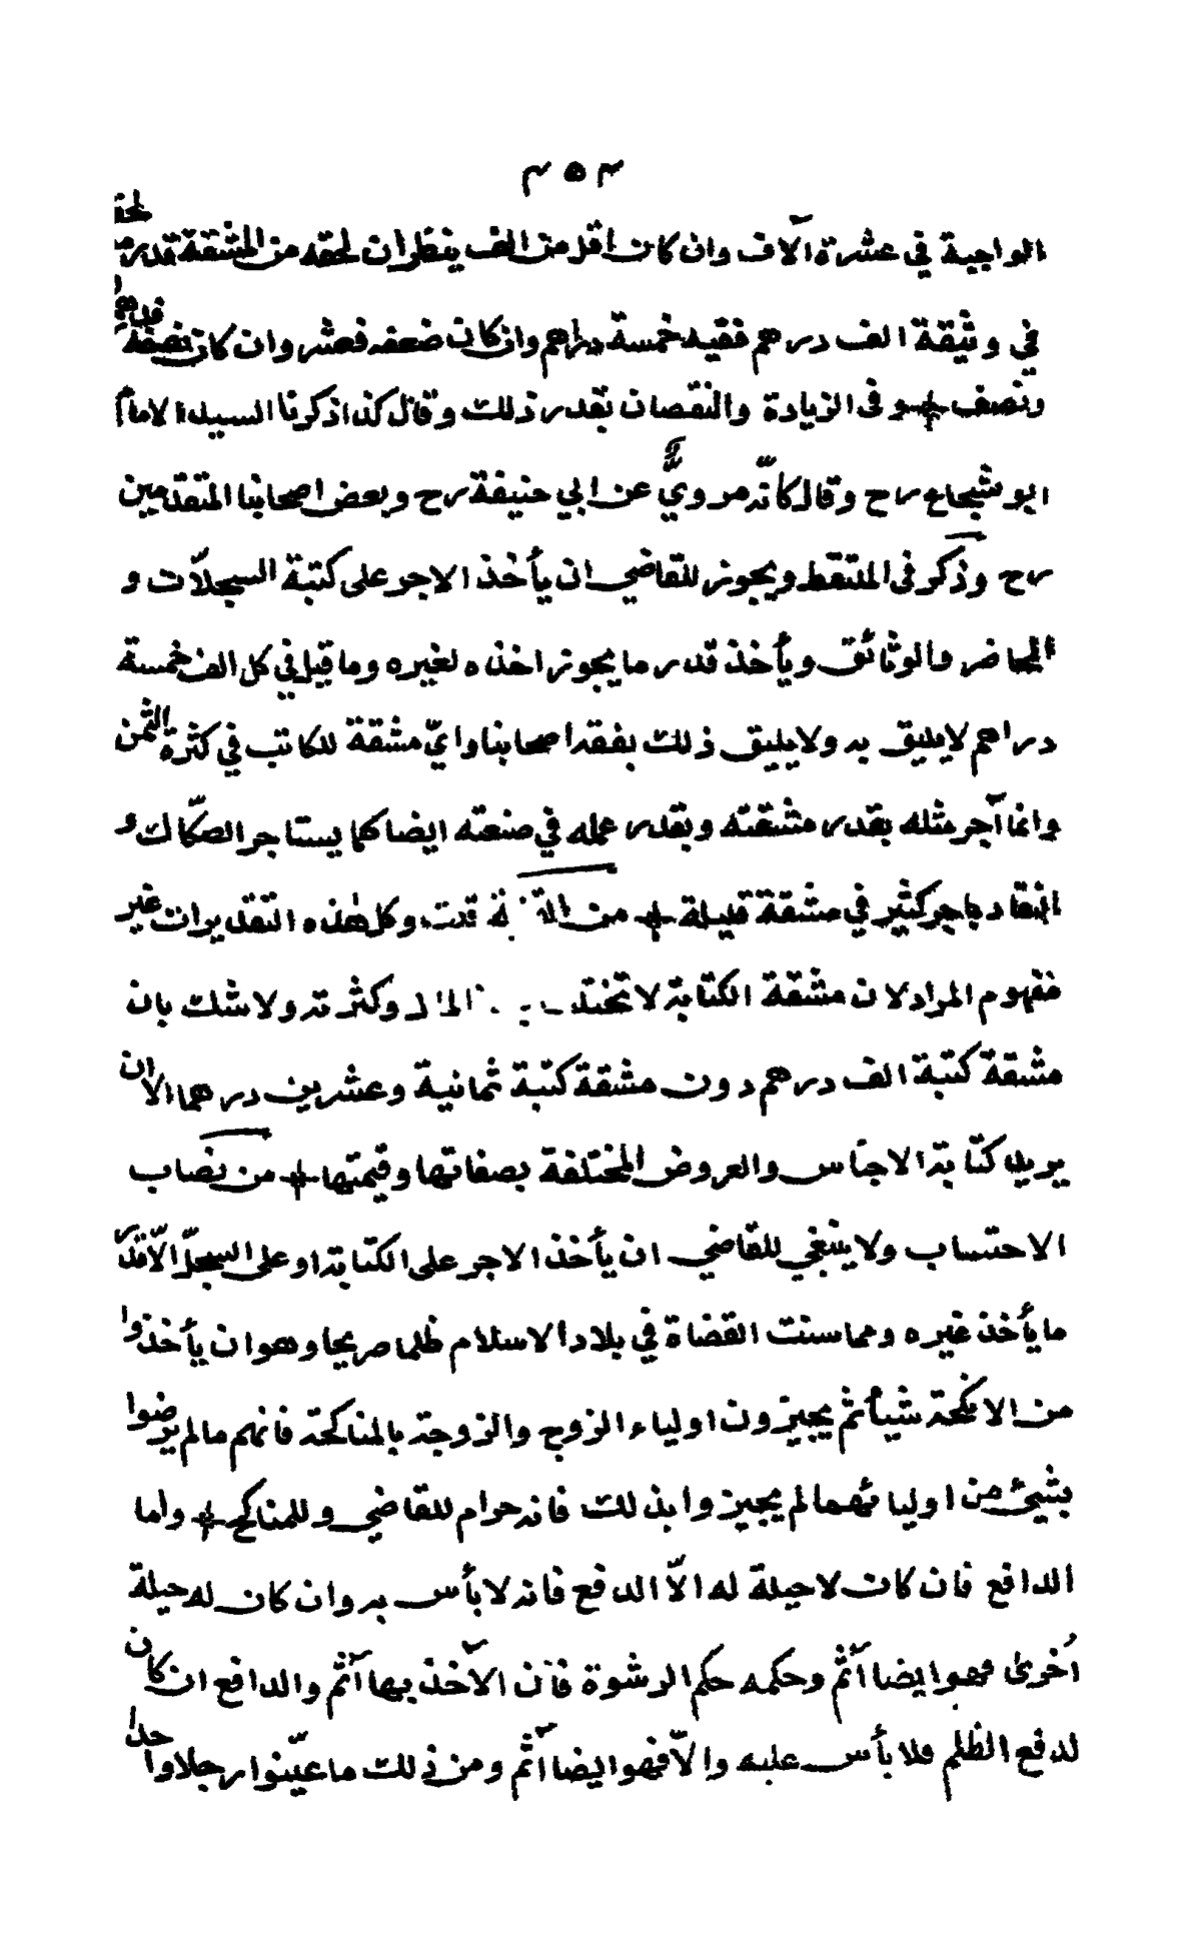 ٣٥٣
الواجبة في عشرة آلاف وان كان اقل من الف ينظر ان لحقه من المشقة قدر ما لحقه
في وثيقة الف درهم ففيه خمسة دراهم وان كان ضعفه فعشر وان كان نصفه فدرهما
ونصف وفى الزيادة والنقصان بقدر ذلك وقال كذا ذكرنا السيد الامام
ابو شجاع رح وقال كانّه مرويٌّ عن ابي حنيفة رح وبعض اصحابنا المتقدمين
رح وذكر فى الملتقط ويجوز للقاضي ان يأخذ الاجر على كتبة السجلّات و
المحاضر والوثائق ويأخذ قدر ما يجوز اخذه لغيره وما قيل في كل الف خمسة
دراهم لا يليق به ولا يليق ذلك بفقه اصحابنا وايّ مشقة للكاتب في كثرة الثمن
وانما آجر مثله بقدر مشقته وبقدر عمله في صنعته ايضا كما يستاجر الصكّاك و
النقاد باجر كثير في مشقة قليلة من قلت وكل هذه التقديرات غير
مفهوم المراد لان مشقة الكتابة لا تختلف المال وكثرته ولا شك بان
مشقة كتبة الف درهم دون مشقة كتبة ثمانية وعشرين درهما الا ان
يريد كتابة الاجناس والعروض المختلفة بصفاتها وقيمتها من نصاب
الاحتساب ولا ينبغي للقاضي ان يأخذ الاجر على الكتابة او على السجلّ الّا قدر
ما يأخذ غيره ومما سنت القضاة في بلاد الاسلام ظلما صريحا وهو ان يأخذوا
من الانكحة شيأ ثم يجيزون اولياء الزوج والزوجة بالمناكحة فانهم ما لم يرضوا
بشيئ من اوليائهما لم يجيزوا بذلك فانه حرام للقاضي وللمناكح واما
الدافع فان كان لا حيلة له الّا الدفع فانه لا بأس به وان كان له حيلة
أخرى فهو ايضا آثم وحكمه حكم الرشوة فان الآخذ بها آثم والدافع ان كان
لدفع الظلم فلا بأس عليه والّا فهو ايضا آثم ومن ذلك ما عيّنوا رجلا واحدا